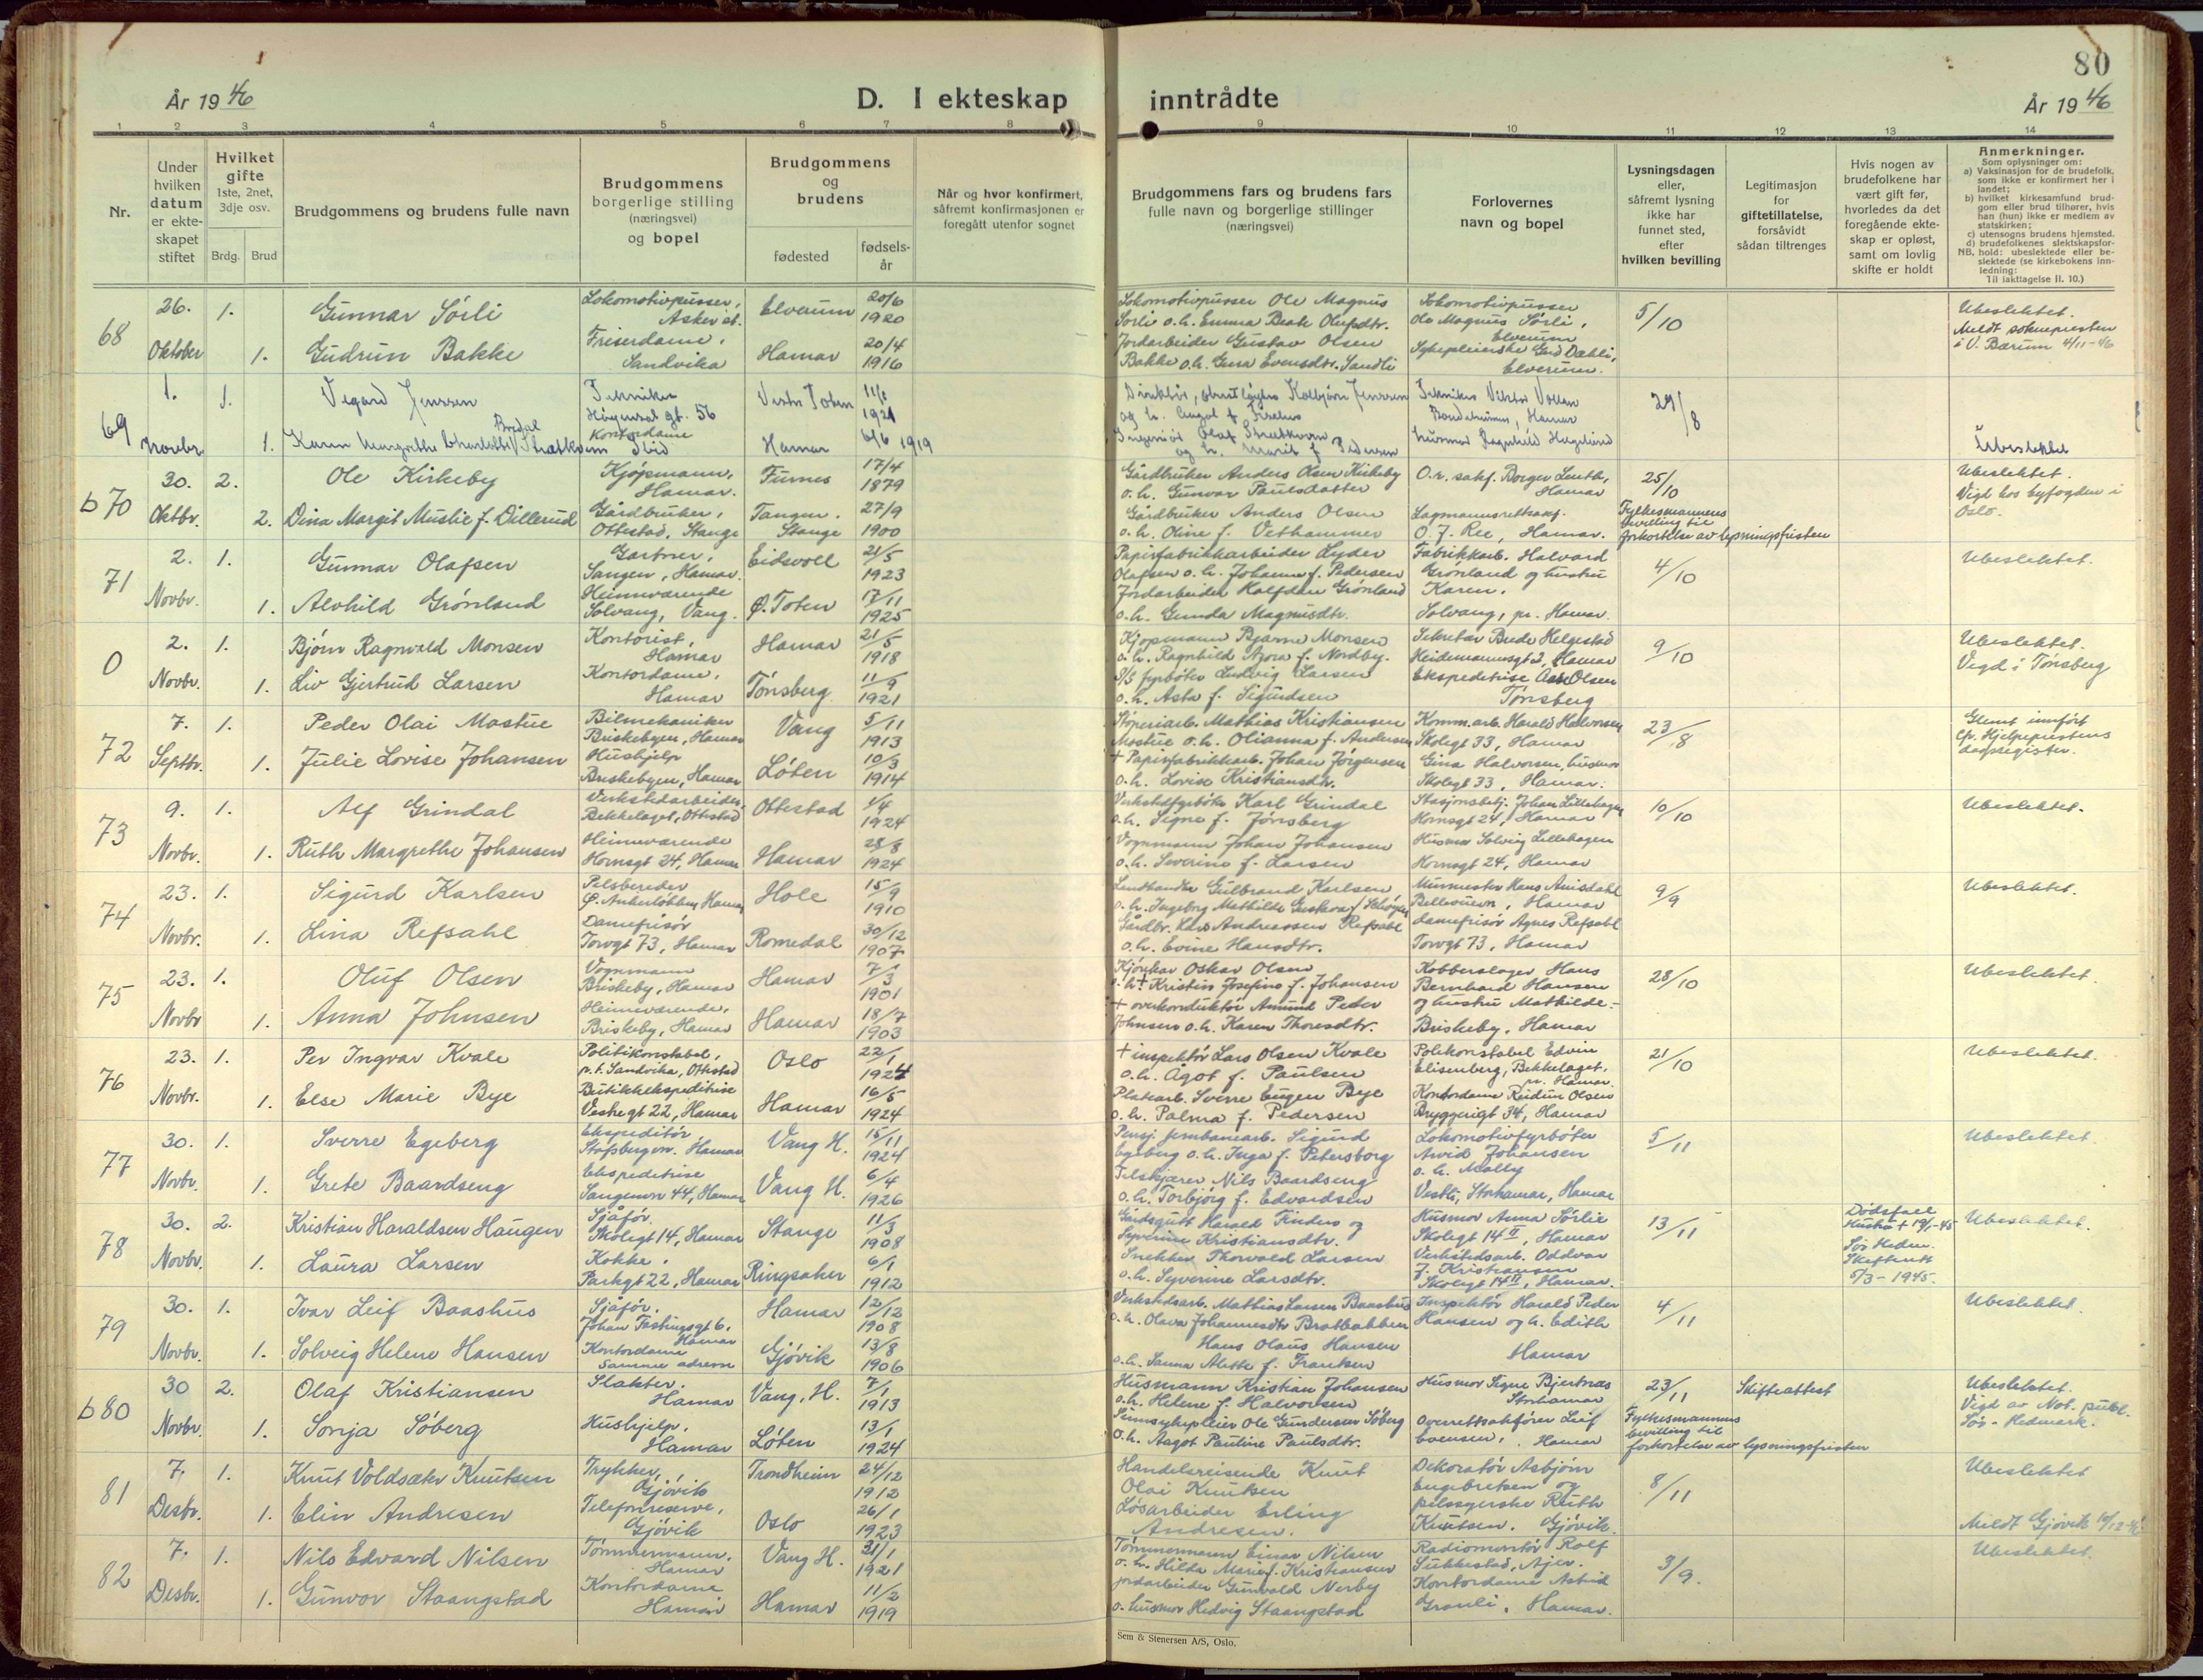 80
År 1946
D. I ekteskap inntrådte
År 1946
1 2 3 4 5 6 7 8 9 10 11 12 13 14
Nr.
Under hvilken datum er ekteskapet stiftet
Hvilket gifte
1ste, 2net, 3dje osv.
Brdg. Brud
Brudgommens og brudens fulle navn
Brudgommens borgerlige stilling (næringsvei) og bopel
Brudgommens og brudens
fødested
fødsels-år
Når og hvor konfirmert, såfremt konfirmasjonen er foregått utenfor sognet
Brudgommens fars og brudens fars fulle navn og borgerlige stillinger (næringsvei)
Forlovernes navn og bopel
Lysningsdagen eller, såfremt lysning ikke har funnet sted, efter hvilken bevilling
Legitimasjon for giftetillatelse, forsåvidt sådan tiltrenges
Hvis nogen av brudefolkene har vært gift før, hvorledes da det foregående ekteskap er opløst, samt om lovlig skifte er holdt
Anmerkninger.
Som oplysninger om:
a) Vaksinasjon for de brudefolk, som ikke er konfirmert her i landet;
b) hvilket kirkesamfund brudgom eller brud tilhører, hvis han (hun) ikke er medlem av statskirken;
c) utensogns brudens hjemsted.
d) brudefolkenes slektskapsforhold: ubeslektede eller beslektede (se kirkebokens innledning:
NB. Til iakttagelse II. 10.)
68 26. Oktober 1. Gunnar Sörli Lokomotivpusser, Asker st. Elverum 20/6 1920
1. Gudrun Bakke Friserdame, Sandvika Hamar 20/4 1916
Lokomotivpusser Ole Magnus Sörli o.h. Emma Beate Olufsdtr.
Jordarbeider Gustav Olsen Bakke o.h. Gina Evensdtr. Sandli
Lokomotivpusser Ole Magnus Sörli, Elverum
Sykepleierske Gerd Dæhli, Elverum.
5/10
Ubeslektet.
Meldt sokneprestens i V. Bærum 4/11-46
69 1. Novebr. 1. Vegard Jenssen Tekniker Höyensal gt. 56 Vestre Toten 11/1 1921
1. Karen Margrethe Charlotte Bredal Strætkvern Kontordame Ibid Hamar 6/6 1919
29/8
Ubeslektet
b70 30. Oktbr. 2. Ole Kirkeby Kjöpmann, Hamar. Furnes 17/4 1879
2. Dina Margit Muslie f. Dillerud Gårdbruker, Ottestad, Stange Tangen, Stange 27/9 1900
Gårdbruker Anders Olsen Kirkeby o.h. Gunvor Paulsdatter
Gårdbruker Anders Olsen o.h. Oline f. Vethammer
O.r. sakf. Borger Lenth, Hamar
Lagmannsrettsang. O. J. Ree, Hamar.
25/10
Fylkesmannens bevilling til forkortelse av lysningsfristen
Ubeslektet.
Vigd hos byfogden i Oslo.
71 2. Novbr. 1. Gunnar Olafsen Gartner, Sangen, Hamar. Eidsvoll 21/5 1923
1. Alvhild Grönland Heimeværende Solvang, Vang. Ö. Toten 17/11 1925
Papirfabrikkarbeider Lyder Olafsen o.h. Johanne f. Pedersen
Jordarbeider Halfdan Grönland o.h. Gunda Magnusdtr.
Fabrikkarb. Halvard Grönland og hustru Karen. Solvang, pr. Hamar
4/10
Ubeslektet.
0 2. Novbr. 1. Björn Ragnvald Monsen Kontorist, Hamar Hamar 21/5 1918
1. Liv Gjertrud Larsen Kontordame, Hamar Tönsberg 11/9 1921
Kjöpmann Bjarne Monsen o.h. Ragnhild Agora f. Nordby.
D/S fyrböter Ludvig Larsen o.h. Asta f. Sigurdsen
Sekretær Brede Helgestad Heidemannsgt 2, Hamar
Ekspeditrise Aase Olsen Tönsberg
9/10
Ubeslektet.
Vigd i Tönsberg
72 7. Septbr. 1. Peder Olai Mostue Bilmekaniker Briskebyen, Hamar Vang 5/11 1913
1. Julie Lovise Johansen Hushjelp Briskebyen, Hamar Löten 10/3 1914
Stöperiarb. Mathias Kristiansen Mostue o.h. Olianna f. Andersen
+ Papirfabrikkarb. Johan Jörgensen o.h. Lovise Kristiansdtr.
Komm.arb. Harald Halvorsen Skolegt 33, Hamar
Gina Halvorsen, husmor Skolegt 33, Hamar.
23/8
Glemt innfört cfr. Hjelpeprestens dagsregister.
73 9. Novbr. 1. Alf Grindal Verkstedarbeider, Bekkelaget, Ottestad Ottestad 1/4 1924
1. Ruth Margrethe Johansen Heimeværende Hornsgt 24, Hamar Hamar 28/8 1924
Verkstedfyrböter Karl Grindal o.h. Signe f. Jönsberg
Vognmann Johan Johansen o.h. Severine f. Larsen
Stasjonsbetj. Johan Lillehagen Hornsgt 24, Hamar
Husmor Solveig Lillehagen Hornsgt 24, Hamar
10/10
Ubeslektet.
74 23. Novbr. 1. Sigurd Karlsen Pelsbereder Ö. Ankerlökken, Hamar Hole 15/9 1910
1. Lina Refsahl Damefrisör Torvgt 73, Hamar Romedal 30/12 1907
Landhandler Gulbrand Karlsen o.h. Ingeborg Mathilde Gustava f. Schöyen
Gårdbr. Lars Andreassen Refsahl o.h. Evine Hansdtr.
Murmester Hans Amsdahl Bellevuevn, Hamar
damefrisör Agnes Refsahl Torvgt 73, Hamar
9/9
Ubeslektet.
75 23. Novbr 1. Oluf Olsen Vognmann Briskeby, Hamar Hamar 7/3 1901
1. Anna Johnsen Heimeværende, Briskeby, Hamar Hamar 18/7 1903
Kjörekar Oskar Olsen o.h. + Kristine Josefine f. Johansen
+ overkonduktör Amund Peter Johnsen o.h. Karen Thoresdtr.
Kobberslager Hans Bernhard Hansen og hustru Mathilde - Briskeby, Hamar
28/10
Ubeslektet.
76 23. Novbr. 1. Per Ingvar Kvale Politikonstabel, p.t. Sandvika, Ottestad Oslo 22/1 1924
1. Else Marie Bye Butikkekspeditrise Vestregt 22, Hamar Hamar 16/5 1924
+ inspektör Lars Olsen Kvale o.h. Ågot f. Paulsen
Platearb. Sverre Eugen Bye o.h. Palma f. Pedersen
Politikonstabel Edvin Elisenberg, Bekkelaget, pr. Hamar.
Kontordame Reidun Olsen Bryggerigt 34, Hamar
21/10
Ubeslektet.
77 30. Novbr. 1. Sverre Egeberg Ekspeditör Stafsbergvn. Hamar Vang H. 15/11 1924
1. Grete Baardseng Ekspeditrise Sangenvn 44, Hamar Vang H. 6/4 1926
Pensj. jernbanearb. Sigurd Egeberg o.h. Inga f. Petersborg
Nils Baardseng o.h. Torbjörg f. Edvardsen
Lokomotivfyrböter Arvid Johansen o.h. Molly Vestli, Storhamar, Hamar
5/11
Ubeslektet.
78 30. Novbr. 2. Kristian Haraldsen Haugen Sjåför. Skolegt 14, Hamar Stange 11/3 1908
1. Laura Larsen Kokke. Parkgt 22, Hamar Ringsaker 6/1 1912
Gårdsgutt Harald Finders og Syverine Kristiansdtr.
Snekker Thorvald Larsen o.h. Syverine Larsdtr.
Husmor Anna Sörlie Skolegt 14 II, Hamar
Verkstedsarb. Oddvar J. Kristiansen Skolegt 14 II, Hamar.
13/11
Dödsfall
Hustru + 19/1-45
Sör Hedm. Skifterett
5/3-1945.
Ubeslektet.
79 30. Novbr. 1. Ivar Leif Baashus Sjåför. Johan Fastingsgt 6, Hamar Hamar 12/12 1908
1. Solveig Helene Hansen Kontordame Samme adresse Gjövik 13/8 1906
Verkstedsarb. Mathias Larsen Baashus o.h. Olava Johannesdtr Bratbakken
Hans Olaus Hansen o.h. Sanna Alette f. Frantsen
Inspektör Harald Peder Hansen og h. Edith Hamar
4/11
Ubeslektet.
b80 30 Novbr. 2. Olaf Kristiansen Slakter. Hamar Vang, H. 7/1 1913
1. Sonja Söberg Hushjelp, Hamar Löten 13/1 1924
Husmann Kristian Johansen o.h. Helene f. Halvorsen
Sinnsykepleier Ole Gundersen Söberg o.h. Aagot Pauline Paulsdtr.
Husmor Signe Bjertnæs Storhamar
Overrettssakförer Leif Evensen, Hamar
23/11
Fylkesmannens bevilling til forkortelse av lysningsfristen
Skifteattest
Ubeslektet.
Vigd av Not. publ. Sör-Hedmark.
81 7. Desbr. 1. Knut Voldsæter Knutsen Trykker, Gjövik Trondheim 24/12 1912
1. Elin Andresen Telefonreserve, Gjövik Oslo 26/1 1923
Handelsreisende Knut Olai Knutsen
Lösarbeider Erling Andresen.
Dekoratör Asbjörn Engebretsen og pelssyerske Ruth Knutsen. Gjövik.
8/11
Ubeslektet
Meldt Gjövik
82 7. Desbr. 1. Nils Edvard Nilsen Tömmermann, Hamar Vang H. 31/1 1921
1. Gunvor Staangstad Kontordame Hamar Hamar 11/2 1919
Tömmermann Einar Nilsen o.h. Hilda Marie f. Kristiansen
jordarbeider Gunvald Nerby o. husmor Hedvig Staangstad
Radiomontör Rolf Sukkestad, Ajer.
Kontordame Astrid Granli, Hamar.
3/9.
Ubeslektet.
Sem & Stenersen A/S, Oslo.